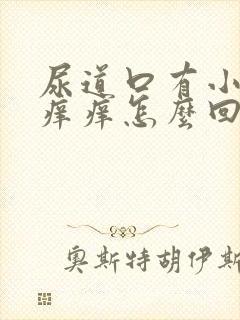 尿道口有小
痒痒怎麼回
奧斯特胡伊斯